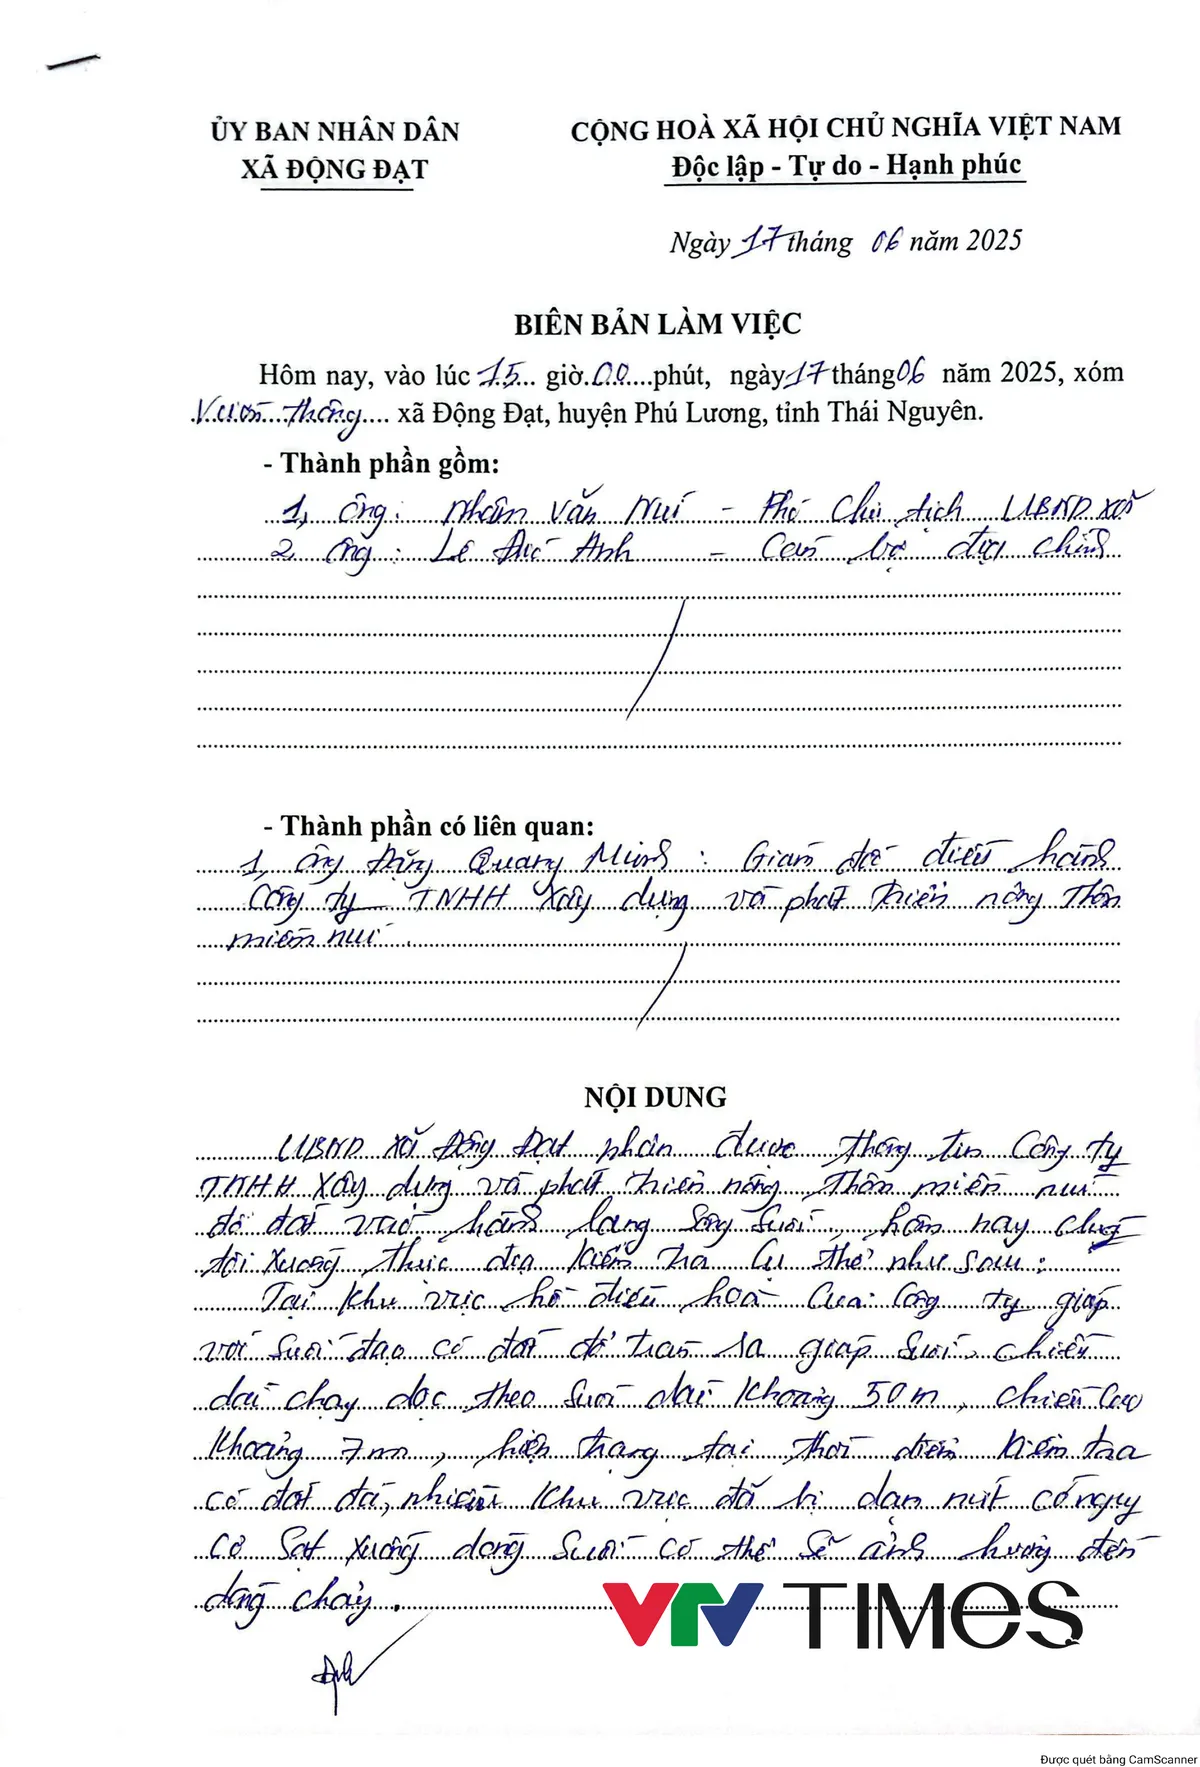 ỦY BAN NHÂN DÂN
XÃ ĐỘNG ĐẠT
CỘNG HOÀ XÃ HỘI CHỦ NGHĨA VIỆT NAM
Độc lập - Tự do - Hạnh phúc
Ngày 17 tháng 06 năm 2025
BIÊN BẢN LÀM VIỆC
Hôm nay, vào lúc 15 giờ 00 phút, ngày 17 tháng 06 năm 2025, xóm
Vườn thông xã Động Đạt, huyện Phú Lương, tỉnh Thái Nguyên.
- Thành phần gồm:
1, ông: Nhâm Văn Núi - Phó Chủ tịch UBND xã
2, ông: Lê Đức Anh - Cán bộ địa chính
- Thành phần có liên quan:
1, ông Đặng Quang Minh: Giám đốc điều hành
Công ty TNHH xây dựng và phát triển nông thôn
miền núi.
NỘI DUNG
UBND xã Động Đạt phản được thông tin Công ty
TNHH xây dựng và phát triển nông thôn miền núi
đổ đất vào hành lang sông suối, hôm nay chúng
tôi xuống thực địa kiểm tra cụ thể như sau:
Tại khu vực hồ điều hoà của công ty giáp
với suối đạo có đất đổ tràn ra giáp suối, chiều
dài chạy dọc theo suối dài khoảng 50m, chiều cao
khoảng 7m, hiện trạng tại thời điểm kiểm tra
có đất đá, nhiều khu vực đã bị dạn nứt có nguy
cơ sạt xuống dòng suối có thể sẽ ảnh hưởng đến
dòng chảy.
VTV TIMES
Được quét bằng CamScanner